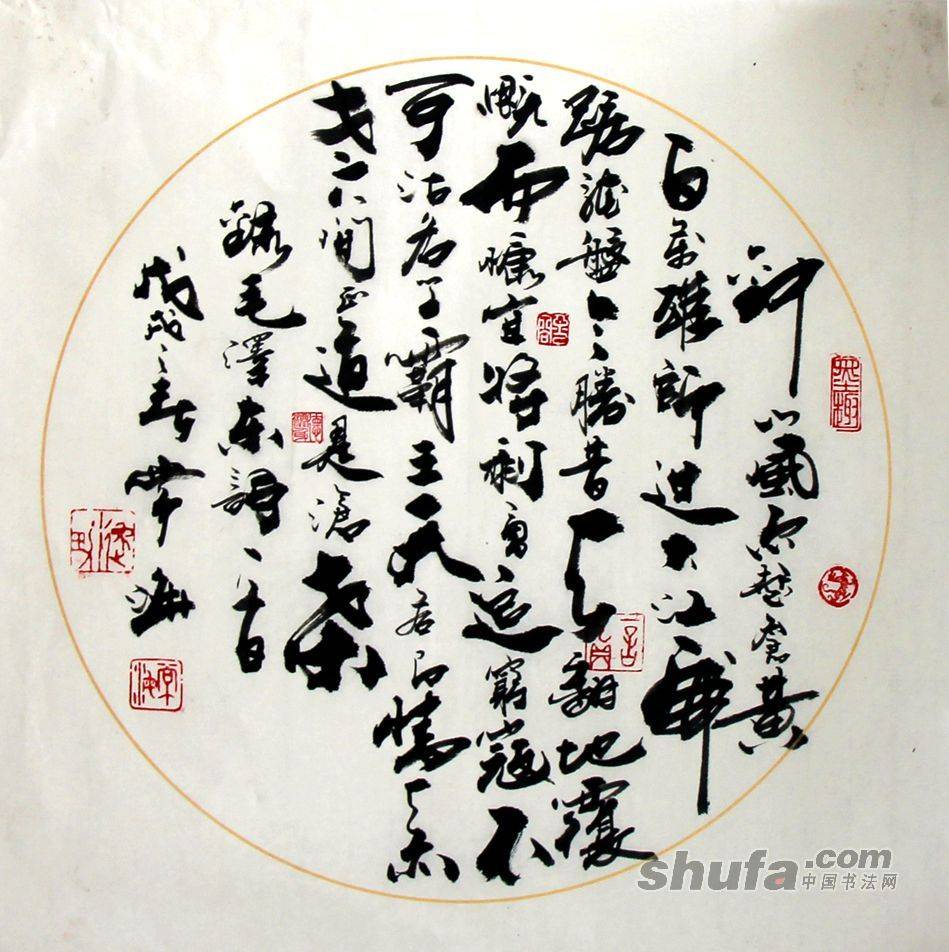 鈡山風雨起蒼黄
百万雄師过大江虎
踞龍盤今勝昔天翻地覆
慨而慷宜将剩勇追窮寇不
可沽名学霸王天若有情天亦
老人间正道是滄桑
錄毛澤东詩一首
戊戌之春 海
shufa.com
中国书法网